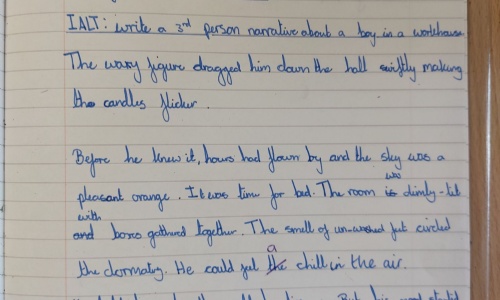 IALT: write a 3rd person narrative about a boy in a workhouse
The waxy figure dragged him down the hall swiftly making
the candles flicker.
Before he knew it, hours had flown by and the sky was a
was
pleasant orange. It was time for bed. The room is dimly-lit
with
and boxes gathered together. The smell of un-washed feet circled
a
the dormatory. He could feel the chill in the air.